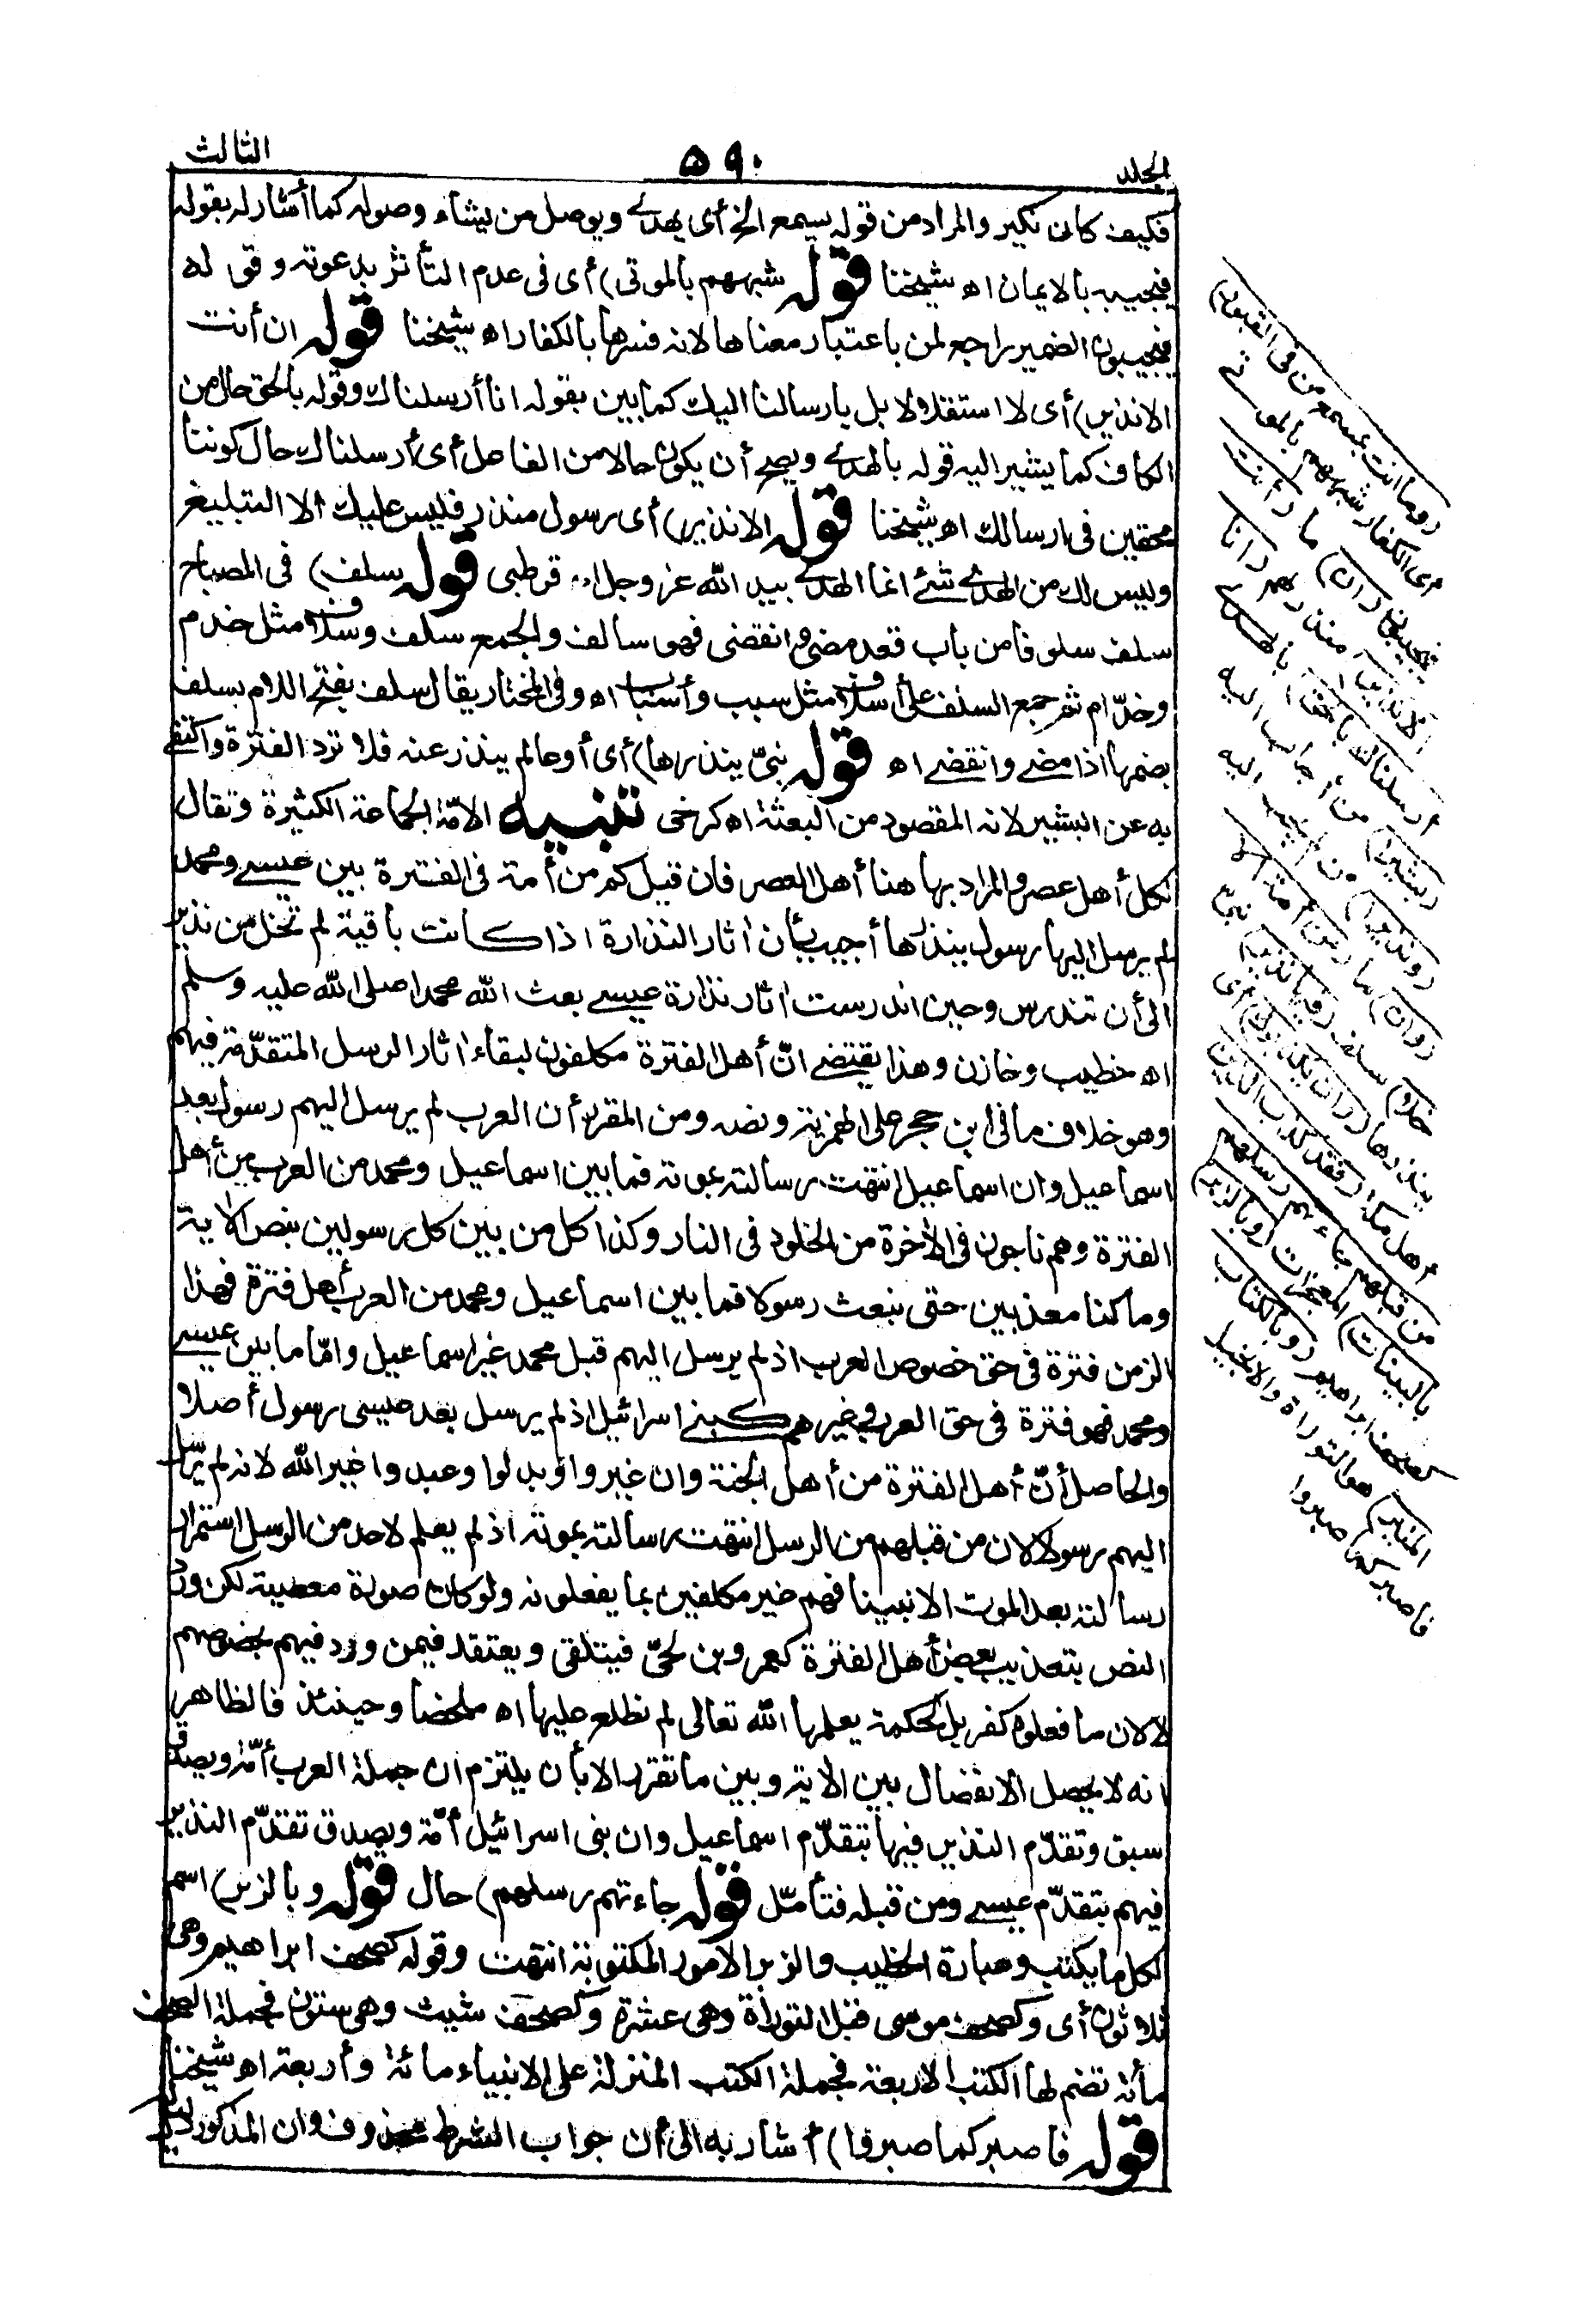 الجلد
٥٩٠
الثالث
فكيف كان نكير والمراد من قوله يسمع الخ أى يهدى ويوصل من يشاء وصوله كما أشار له بقوله
فيجيبه بالايمان اه شيخنا قوله شبههم بالموتى) أى فى عدم التأثر بدعوته وقوله
فيجيبون الضمير راجع لمن باعتبار معناها لانه فسرها بالكفار اه شيخنا قوله ان أنت
الا نذير) أى لا استقلالا بل بارسالنا اليك كما بين بقوله انا أرسلناك وقوله بالحق حال من
الكاف كما يشير اليه قوله بالهدى ويصح أن يكون حالا من الفاعل أى أرسلناك حال كوننا
محقين فى ارسالك اه شيخنا قوله الا نذير) أى رسول منذر فليس عليك الا التبليغ
وليس لك من الهدى شئ انما الهدى بيد الله عز وجل اه قرطبى قوله سلف) فى المصباح
سلف سلوفا من باب قعد مضى وانقضى فهو سالف والجمع سلف وسلاف مثل خدم
وخدّام ثم جمع السلف على أسلاف مثل سبب وأسباب اه وفى المختار يقال سلف بفتح اللام يسلف
بضمها اذا مضى وانقضى اه قوله نبىّ ينذرها) أى أو عالم ينذر عنه فلا ترد الفترة واكتفى
به عن البشير لانه المقصود من البعثة اه كرخى تنبيه الامّة الجماعة الكثيرة وتقال
لكل أهل عصر والمراد بها هنا أهل العصر فان قيل كم من أمة فى الفترة بين عيسى ومحمد
لم يرسل اليها رسول ينذرها أجيب بأن اٰثار النذارة اذا كانت باقية لم تخل من نذير
الى أن تندرس وحين اندرست اٰثار نذارة عيسى بعث الله محمدا صلى الله عليه وسلم
اه خطيب وخازن وهذا يقتضى انّ أهل الفترة مكلفون لبقاء اٰثار الرسل المتقدّمة فيهم
وهو خلاف ما فى ابن حجر على الهمزية ونصه ومن المقرر أن العرب لم يرسل اليهم رسول بعد
اسماعيل وان اسماعيل انتهت رسالته بموته فما بين اسماعيل ومحمد من العرب من أهل
الفترة وهم ناجون فى الاٰخرة من الخلود فى النار وكذا كل من بين كل رسولين بنص الاٰية
وما كنا معذبين حتى نبعث رسولا فما بين اسماعيل ومحمد من العرب أهل فترة فهذا
الزمن فترة فى حق خصوص العرب اذ لم يرسل اليهم قبل محمد غير اسماعيل وامّا ما بين عيسى
ومحمد فهو فترة فى حق العرب وغيرهم كبنى اسرائيل اذ لم يرسل بعد عيسى رسول أصلا
والحاصل أنّ أهل الفترة من أهل الجنة وان غيروا وبدلوا وعبدوا غير الله لانه لم يرسل
اليهم رسول لان من قبلهم من الرسل انتهت رسالته بموته اذ لم يعلم لاحد من الرسل استمرار
رسالته بعد الموت الا نبينا فهم غير مكلفين بما يفعلونه ولو كان صورة معصية لكن ورد
النص بتعذيب بعض أهل الفترة كعمرو بن لحىّ فيتلقى ويعتقد فيمن ورد فيهم بخصوصهم
لا لان ما فعلوه كفر بل لحكمة يعلمها الله تعالى لم نطلع عليها اه ملخصا وحينئذ فالظاهر
انه لا يحصل الانفصال بين الاٰية وبين ما تقرر الا بأن يلتزم ان جملة العرب أمّة ويصدق
سبق وتقدّم النذير فيها بتقدّم اسماعيل وان بنى اسرائيل أمّة ويصدق تقدّم النذير
فيهم بتقدّم عيسى ومن قبله فتأمّل قوله جاءتهم رسلهم) حال قوله وبالزبر) اسم
لكل ما يكتب وعبارة الخطيب والزبر الامور المكتوبة انتهت وقوله كصحف ابراهيم وهى
ثلاثون أى وكصحف موسى قبل التوراة وهى عشرة وكصحف شيث وهى ستون فجملة الصحف
مائة تضم لها الكتب الاربعة فجملة الكتب المنزلة على الانبياء مائة وأربعة اه شيخنا
قوله فاصبر كما صبروا) أشار به الى أن جواب الشرط محذوف وان المذكور ليس
(وما انت بمسمع من فى القبور)
أى الكفار شبههم بالموتى
فيجيبون (ان) ما (أنت
الا نذير) منذر لهم (انا
أرسلناك بالحق) بالهدى
(بشيرا) من أجاب اليه
(ونذيرا) من لم يجب اليه
(وان) ما (من أمة الا
خلا) سلف (فيها نذير) نبىّ
ينذرها (وان يكذبوك) أى
أهل مكة (فقد كذب الذين
من قبلهم جاءتهم رسلهم
بالبينات) المعجزات (وبالزبر)
كصحف ابراهيم (وبالكتاب
المنير) هو التوراة والانجيل
فاصبر كما صبروا